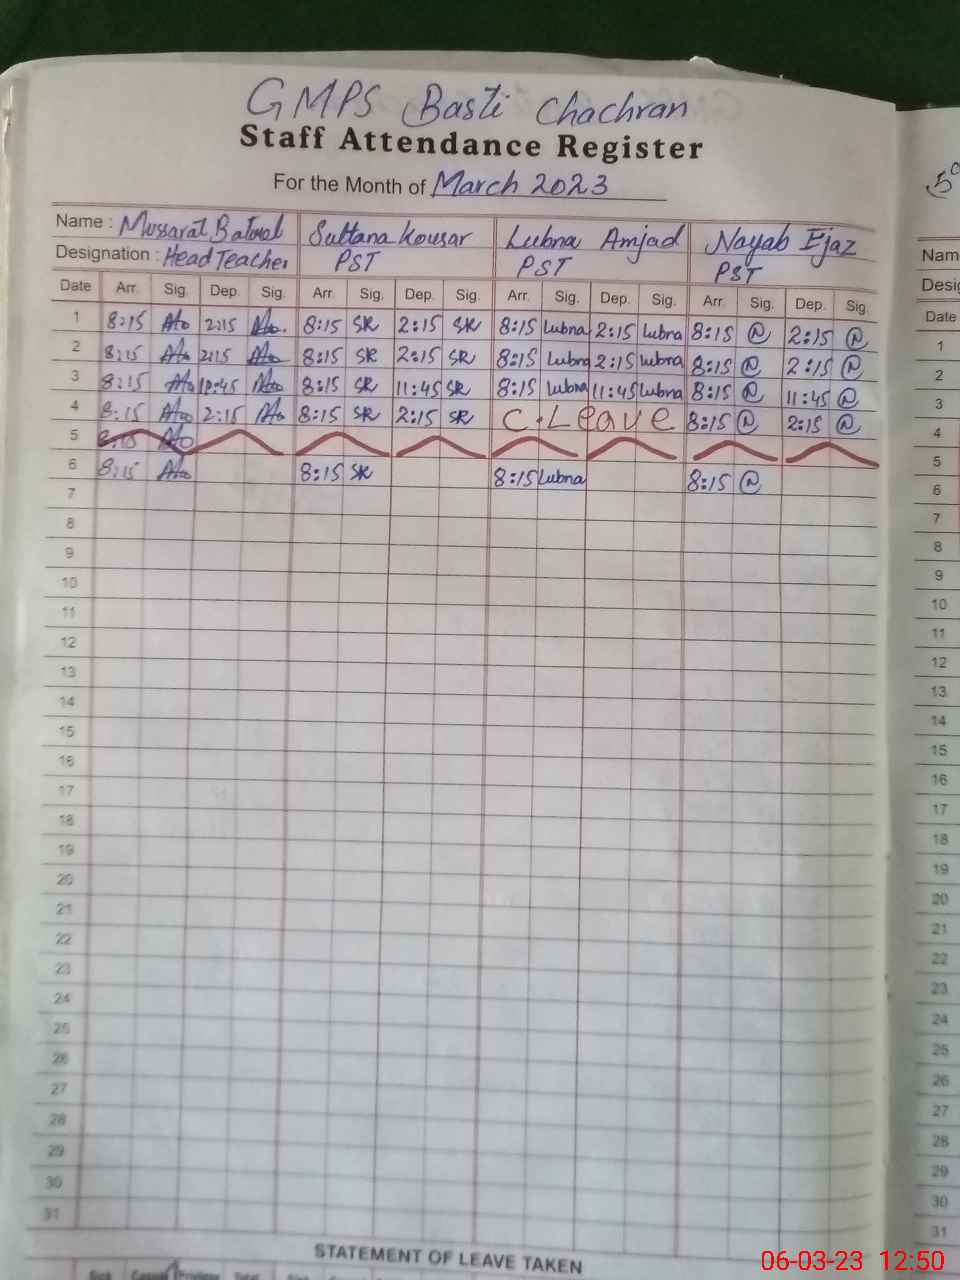 GMPS Basti Chachran
Staff Attendance Register
For the Month of March 2023
Name : Mussarat Batool Sultana Kousar Lubna Amjad Nayab Ejaz
Designation : Head Teacher PST PST PST
Date Arr. Sig. Dep. Sig. Arr. Sig. Dep. Sig. Arr. Sig. Dep. Sig. Arr. Sig. Dep. Sig.
1 8:15 2:15 8:15 SK 2:15 SK 8:15 Lubna 2:15 Lubna 8:15 2:15
2 8:15 2:15 8:15 SK 2:15 SK 8:15 Lubna 2:15 Lubna 8:15 2:15
3 8:15 8:15 SK 11:45 SK 8:15 Lubna 11:45 Lubna 8:15 11:45
4 8:15 2:15 8:15 SK 2:15 SK C.Leave 8:15 2:15
5 8:15
6 8:15 8:15 SK 8:15 Lubna 8:15
7
8
9
10
11
12
13
14
15
16
17
18
19
20
21
22
23
24
25
26
27
28
29
30
31
STATEMENT OF LEAVE TAKEN
Nam
Desig
Date
1
2
3
4
5
6
7
8
9
10
11
12
13
14
15
16
17
18
19
20
21
22
23
24
25
26
27
28
29
30
31
06-03-23 12:50